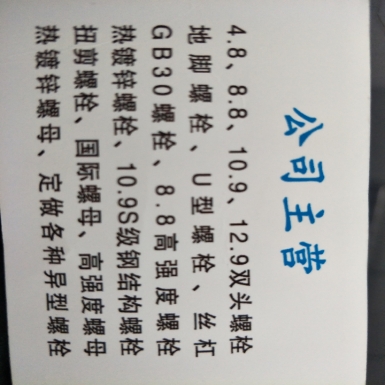 公司主营
4.8、8.8、10.9、12.9双头螺栓
地脚螺栓、U型螺栓、丝杠
GB30螺栓、8.8高强度螺栓
热镀锌螺栓、10.9S级钢结构螺栓
扭剪螺栓、国际螺母、高强度螺母
热镀锌螺母、定做各种异型螺栓